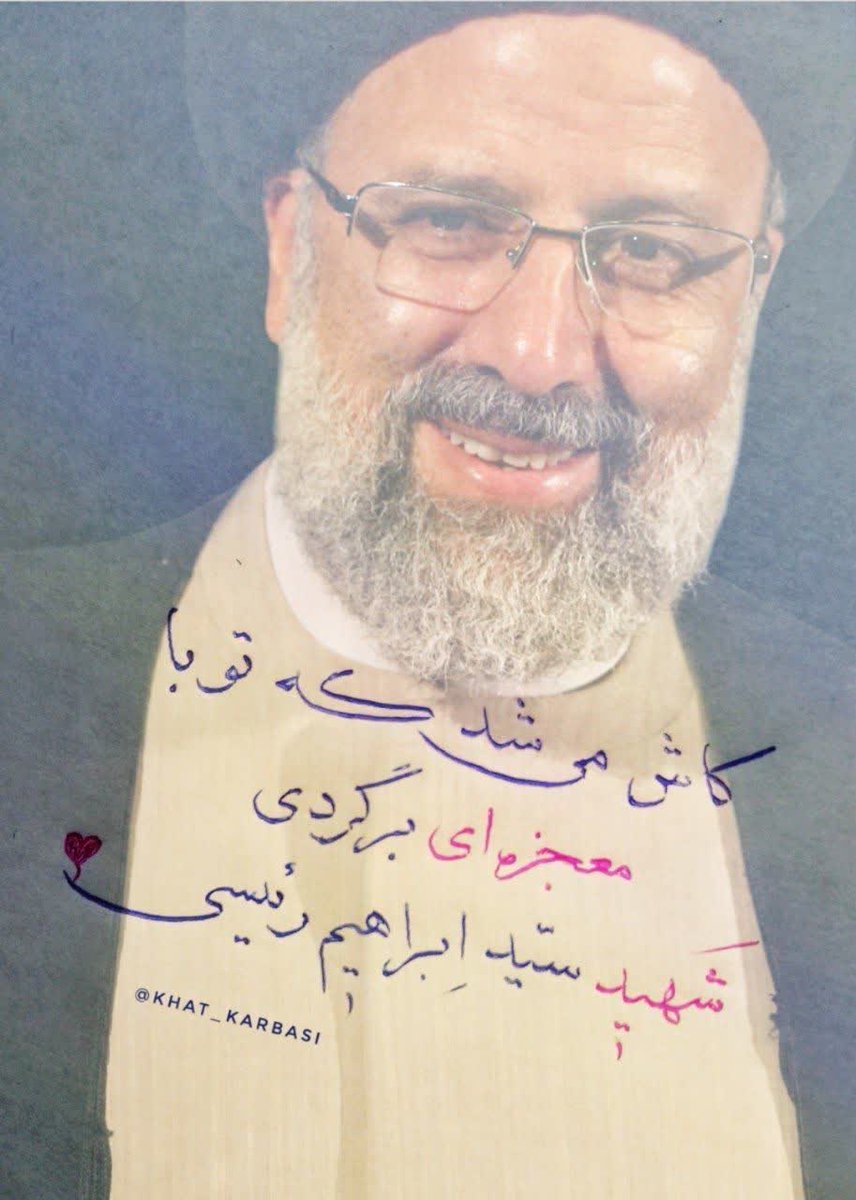 کاش می شد که تو با
معجزه ای برگردی
شهید سیّد اِبراهیم رئیسی
@KHAT_KARBASI